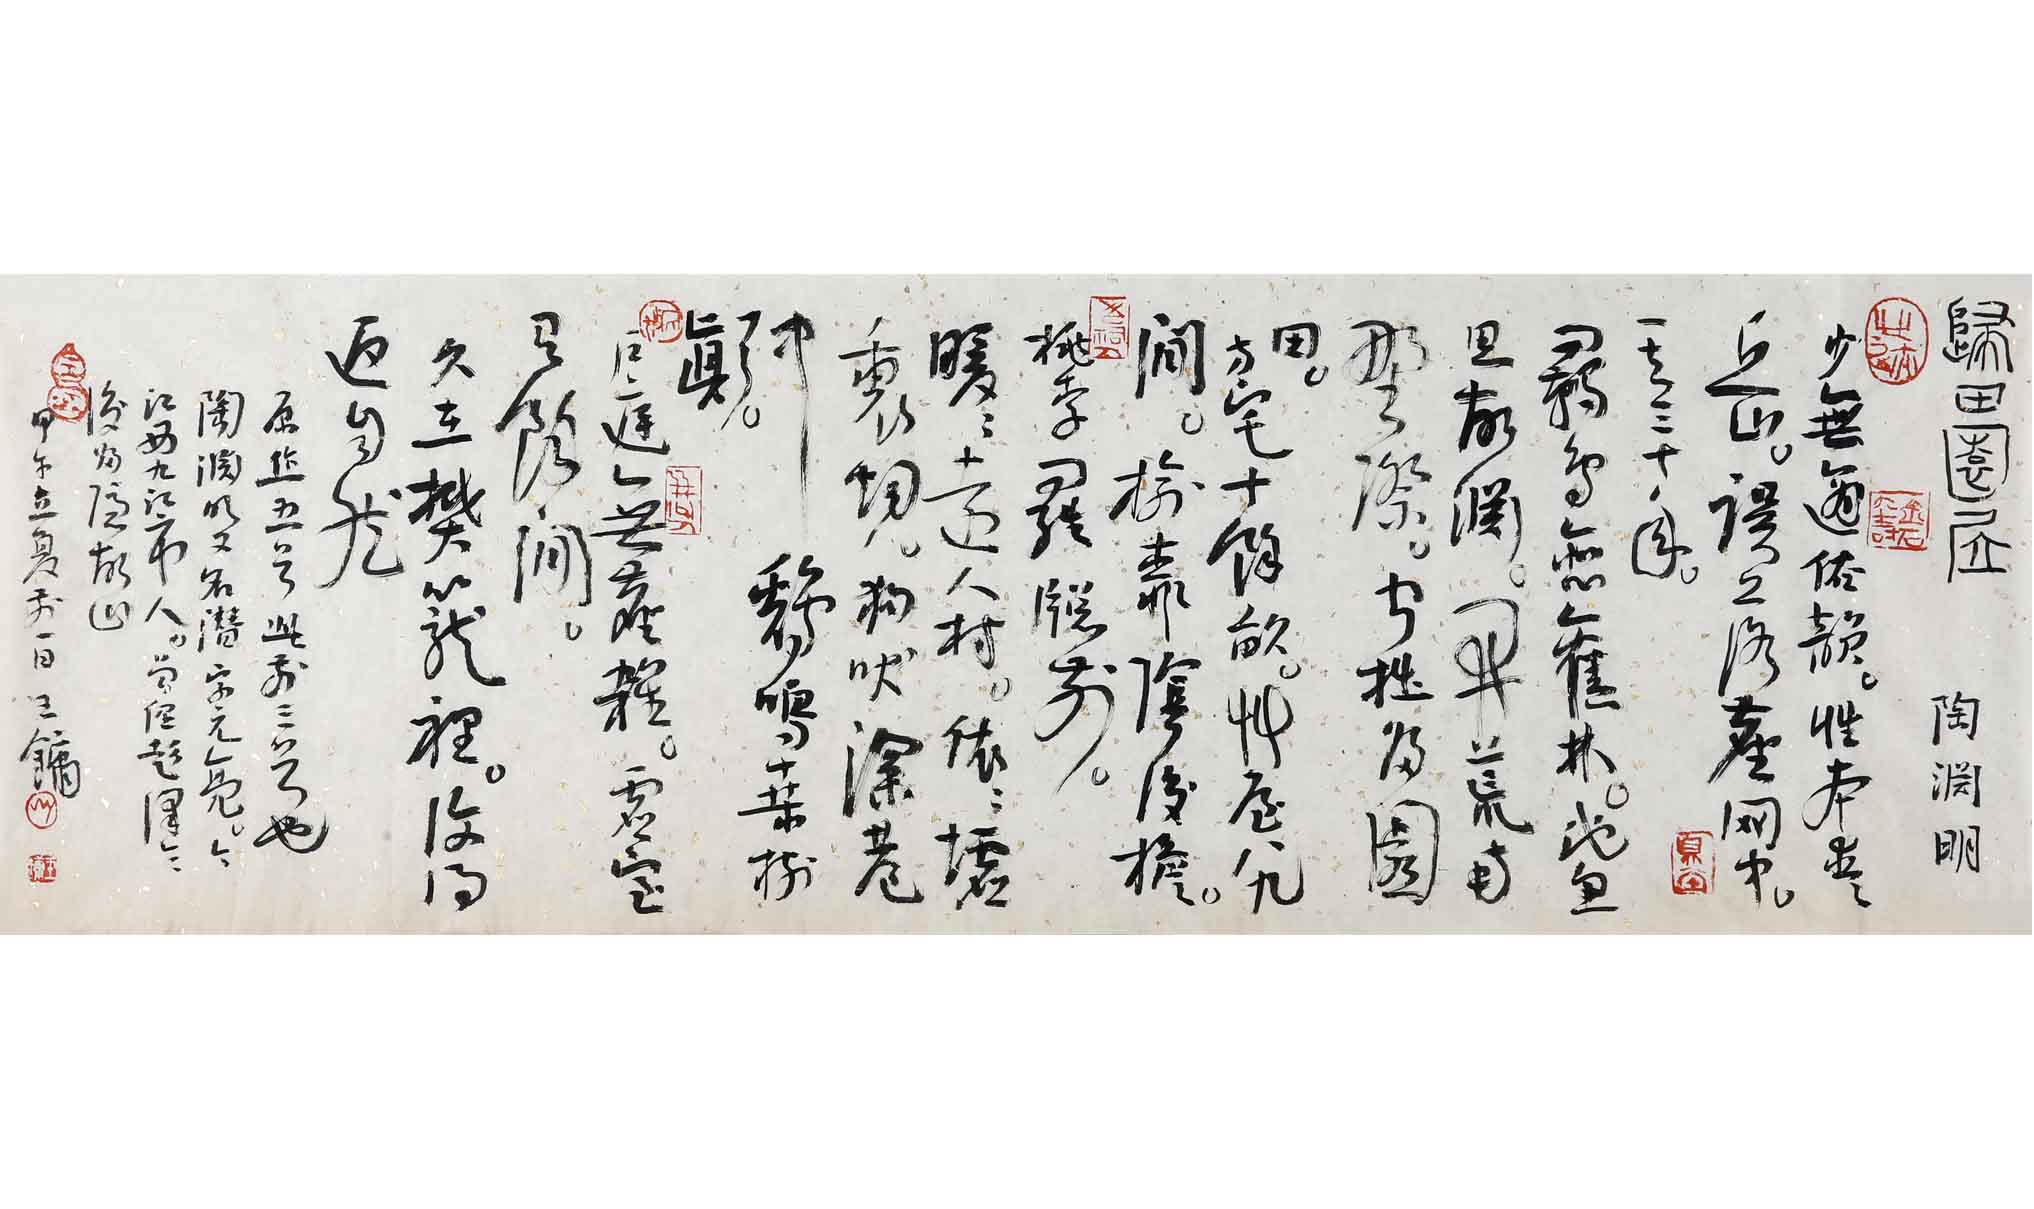 歸田園居
陶淵明
少無適俗韻。性本愛
丘山。誤落塵网中。
一去三十年。
羁鳥戀舊林。池魚
思故淵。開荒南
野際。守拙歸園
田。
方宅十餘畝。艸屋八九
間。榆柳蔭後檐。
桃李羅堂前。
曖〻遠人村。依〻墟
里煙。狗吠深巷
中
雞鳴桑樹
顛。
户庭無塵雜。虛室
有餘閒。
久在樊籠裡。復得
返自然
原作五首此為其一也
陶淵明又名潜字元亮。
江西九江市人。曾任彭澤令
後歸隱故山
甲午立夏前一日 王鏞